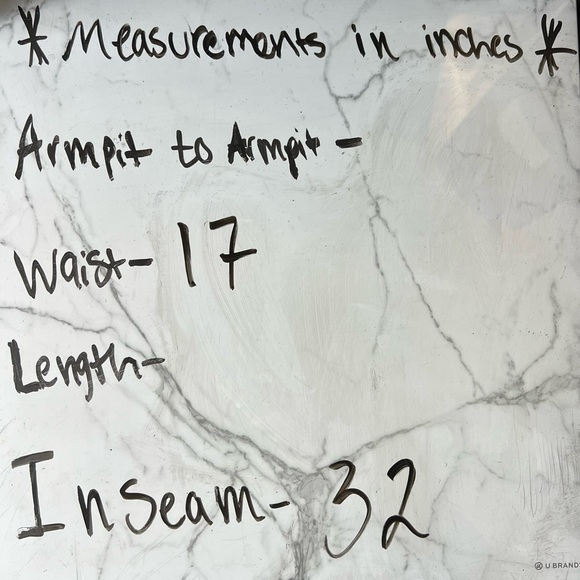 * Measurements in inches *
Armpit to Armpit -
Waist - 17
Length -
Inseam - 32
U BRAND